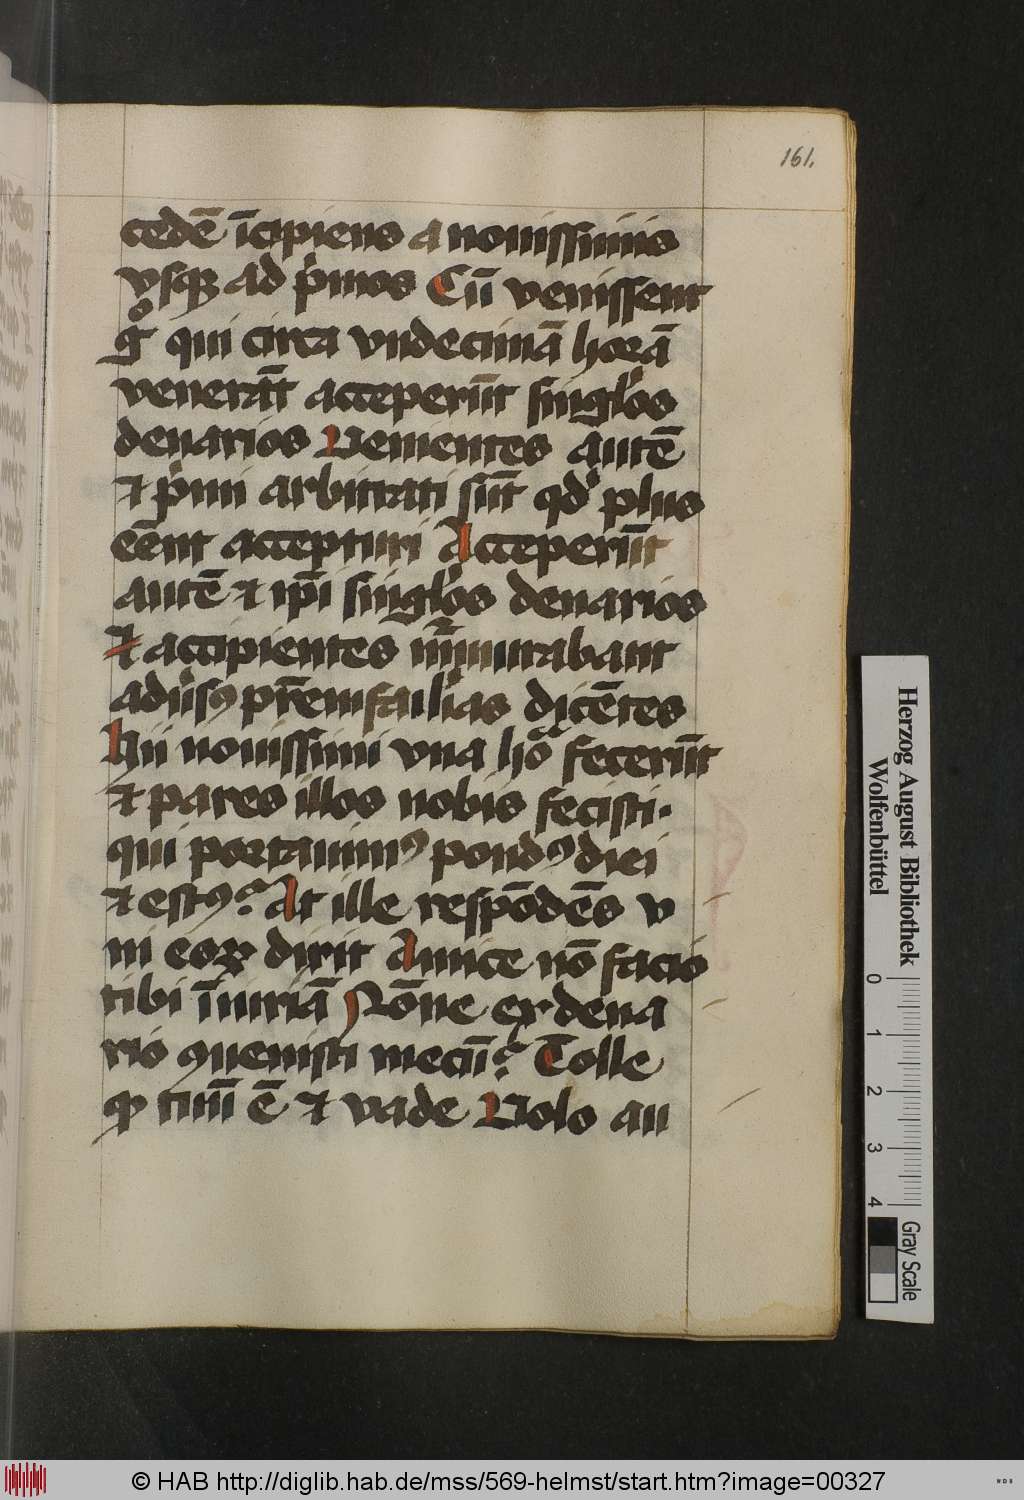 161.
cedē īcipiens a nouissimis
vsq₃ ad p̍mos Cū venissent
gͦ qui circa vndecimā horā
venerāt acceperūt singl̓os
denarios Venientes autē
⁊ p̍mi arbitrati sūt qd̓ plus
eēnt accepturi Acceperūt
autē ⁊ ip̄i singl̓os denarios
⁊ accipientes murmurabant
adu̓sꝰ pr̄emfail̓ias dicētes
Hii nouissimi vna hoͣ fecerūt
⁊ pares illos nobis fecisti·
qui portauimꝰ pondꝰ diei
⁊ estꝰ? At ille respōdēs v
ni eoꝝ dixit Amice nō facio
tibi īiuriā Nōne ex dena
rio ꝯuenisti mecū? Tolle
qͩ tuū ē ⁊ vade Volo au
Herzog August Bibliothek
Wolfenbüttel
0 1 2 3 4
Gray Scale
© HAB http://diglib.hab.de/mss/569-helmst/start.htm?image=00327